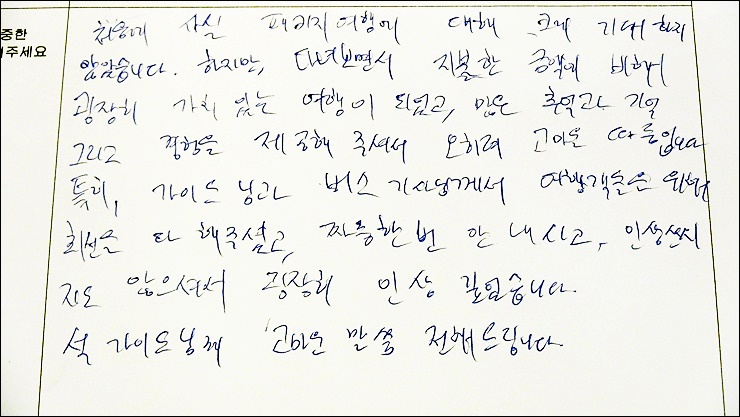 중한
겨주세요
처음에 사실 패키지여행에 대해 크게 기대하지
않았습니다. 하지만, 다녀보면서 지불한 금액에 비해서
굉장히 가치 있는 여행이 되었고, 많은 추억과 기억
그리고 경험을 제공해 주셔서 오히려 고마운 따름입니다
특히, 가이드님과 버스 기사님께서 여행객들은 위해
최선을 다 해주셨고, 짜증한번 안 내시고, 인상쓴지
지도 않으셔서 굉장히 인상 깊었습니다.
석 가이드님께 고마운 말씀 전해드립니다.